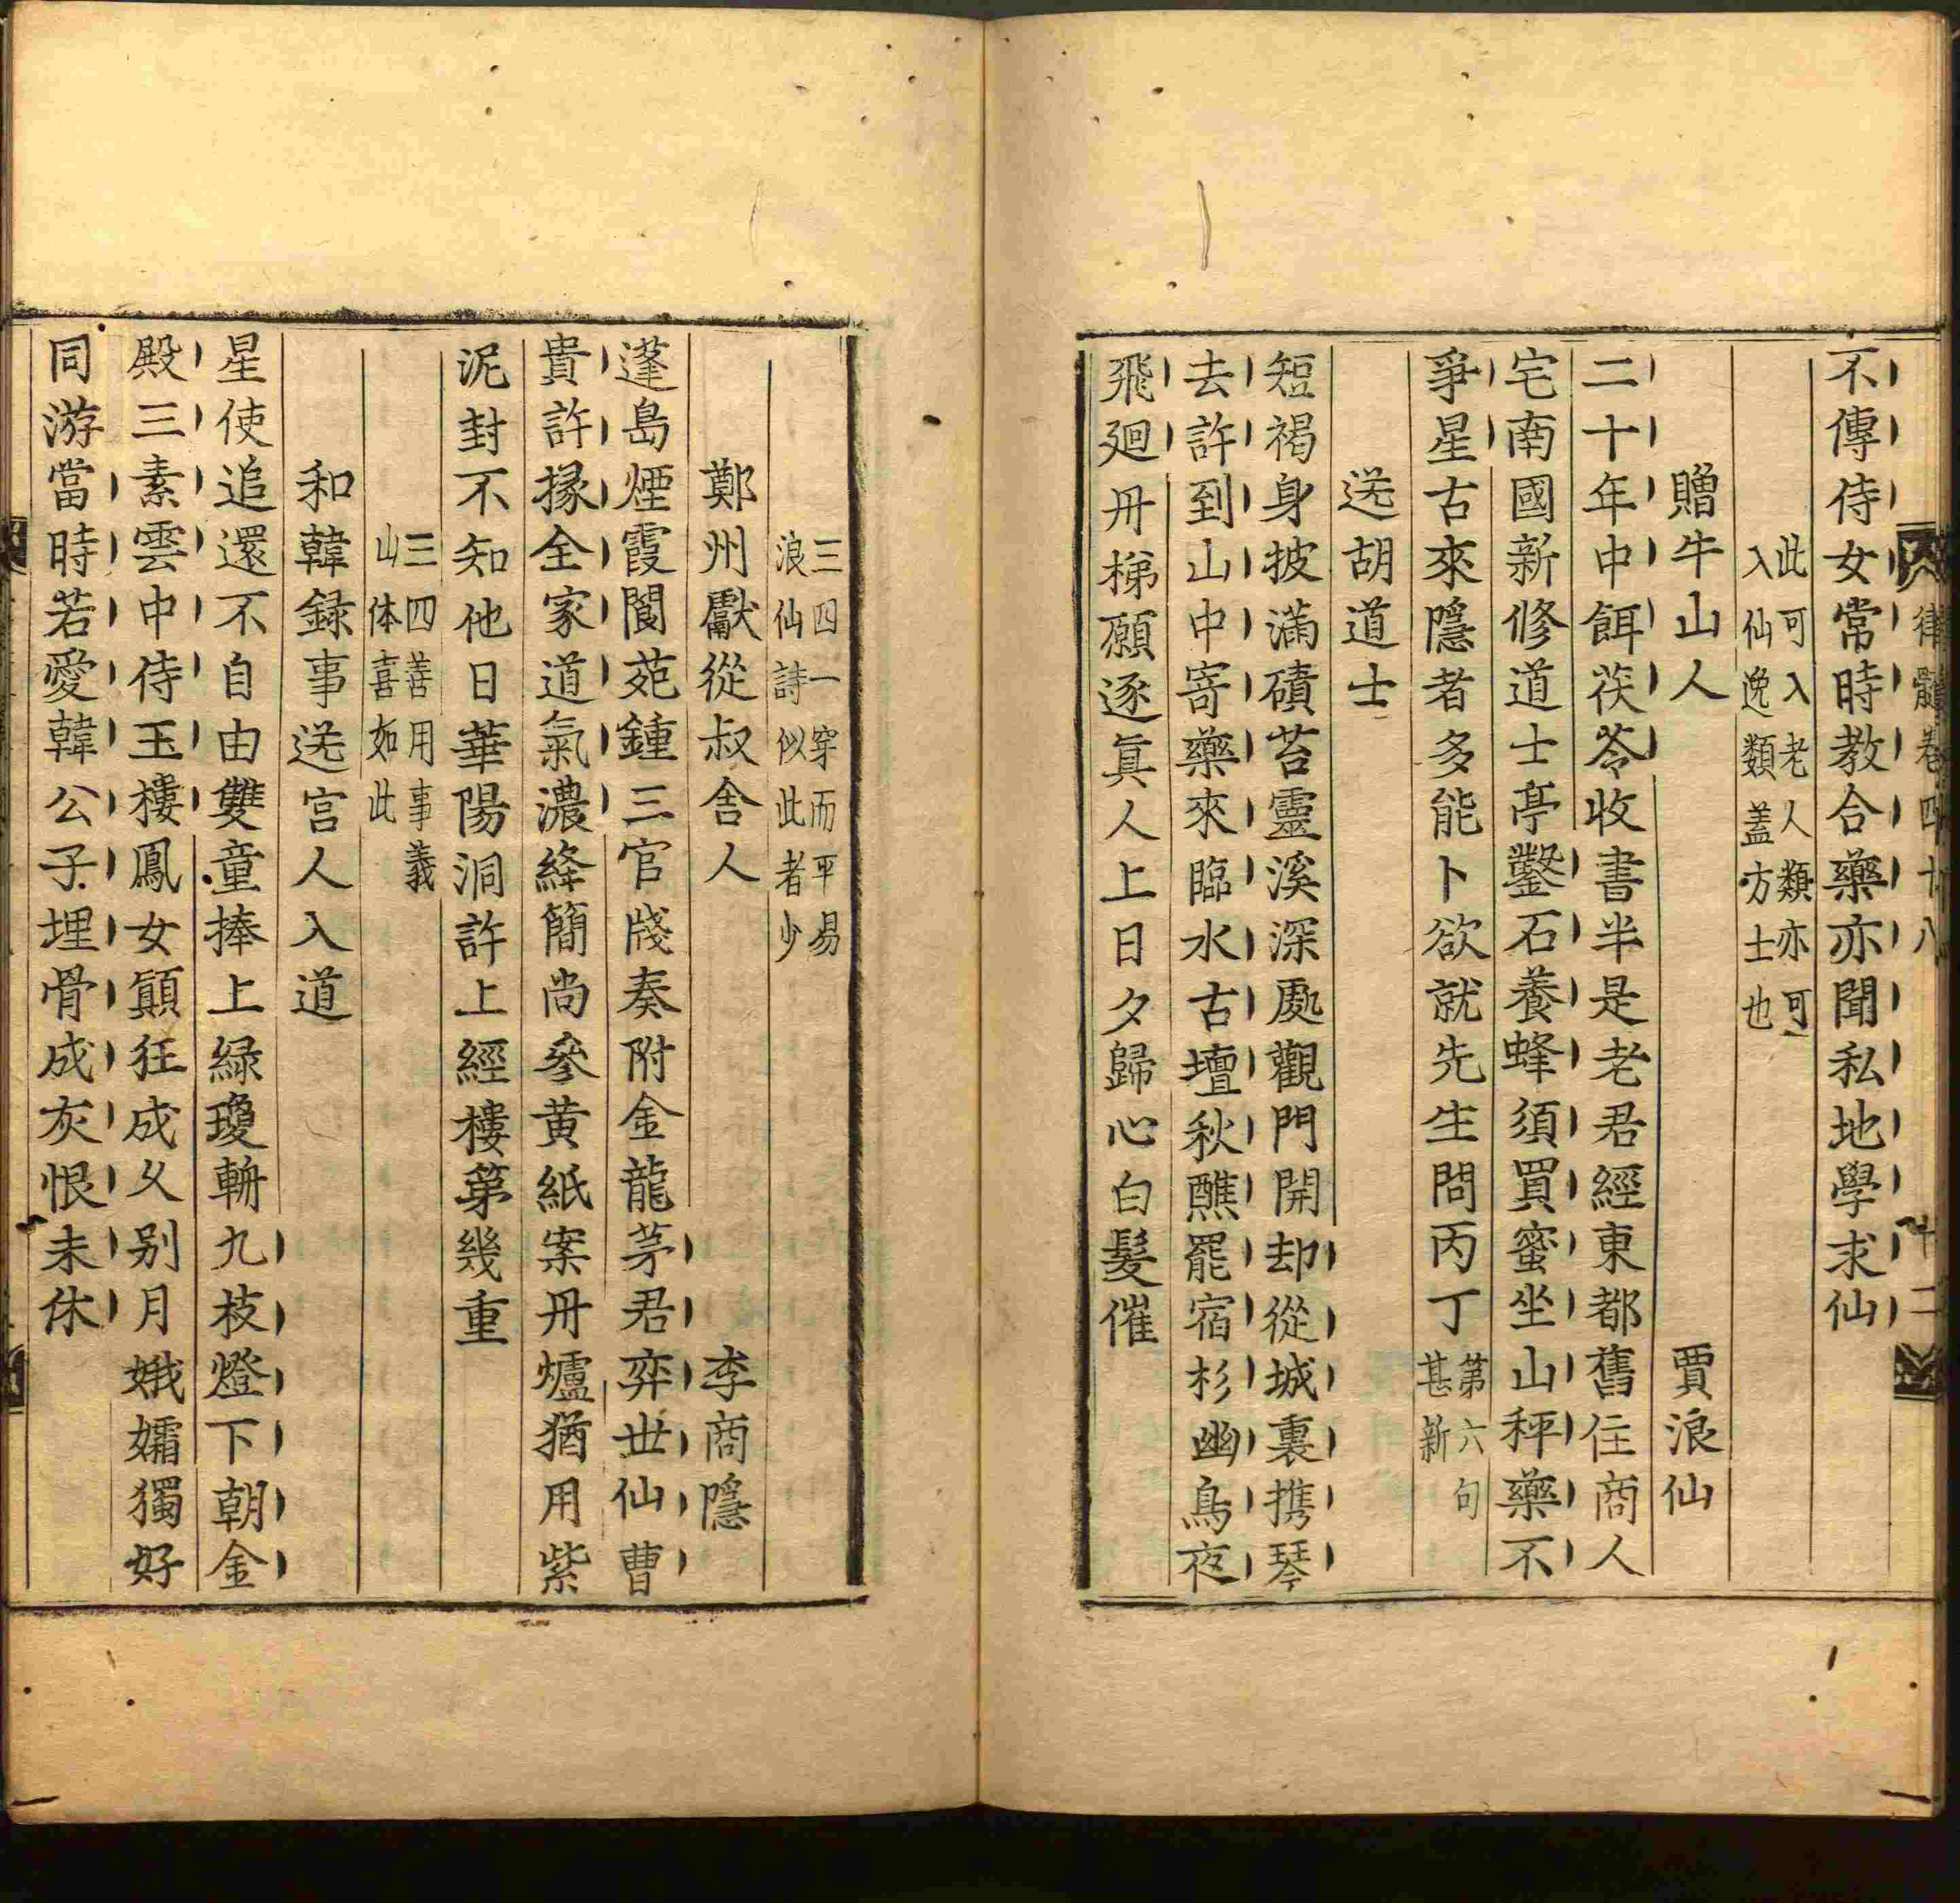 律髓卷四十八
十二
不傳侍女常時教合藥亦聞私地學求仙
此可入老人類亦可
入仙逸類蓋方士也
贈牛山人 賈浪仙
二十年中餌茯苓收書半是老君經東都舊住商人
宅南國新修道士亭鑿石養蜂須買蜜坐山秤藥不
爭星古來隱者多能卜欲就先生問丙丁
第六句
甚新
送胡道士
短褐身披滿磧苔靈溪深處觀門開却從城裏携琴
去許到山中寄藥來臨水古壇秋醮罷宿杉幽鳥夜
飛廻丹梯願逐眞人上日夕歸心白髮催
三四一穿而平易
浪仙詩似此者少
鄭州獻從叔舍人 李商隱
蓬島煙霞閬苑鍾三官牋奏附金龍茅君弈世仙曹
貴許掾全家道氣濃絳簡尚參黄紙案丹爐猶用紫
泥封不知他日華陽洞許上經樓第幾重
三四善用事義
山体喜如此
和韓録事送宫人入道
星使追還不自由雙童捧上緑瓊輧九枝燈下朝金
殿三素雲中侍玉樓鳳女顛狂成久别月娥孀獨好
同游當時若愛韓公子埋骨成灰恨未休